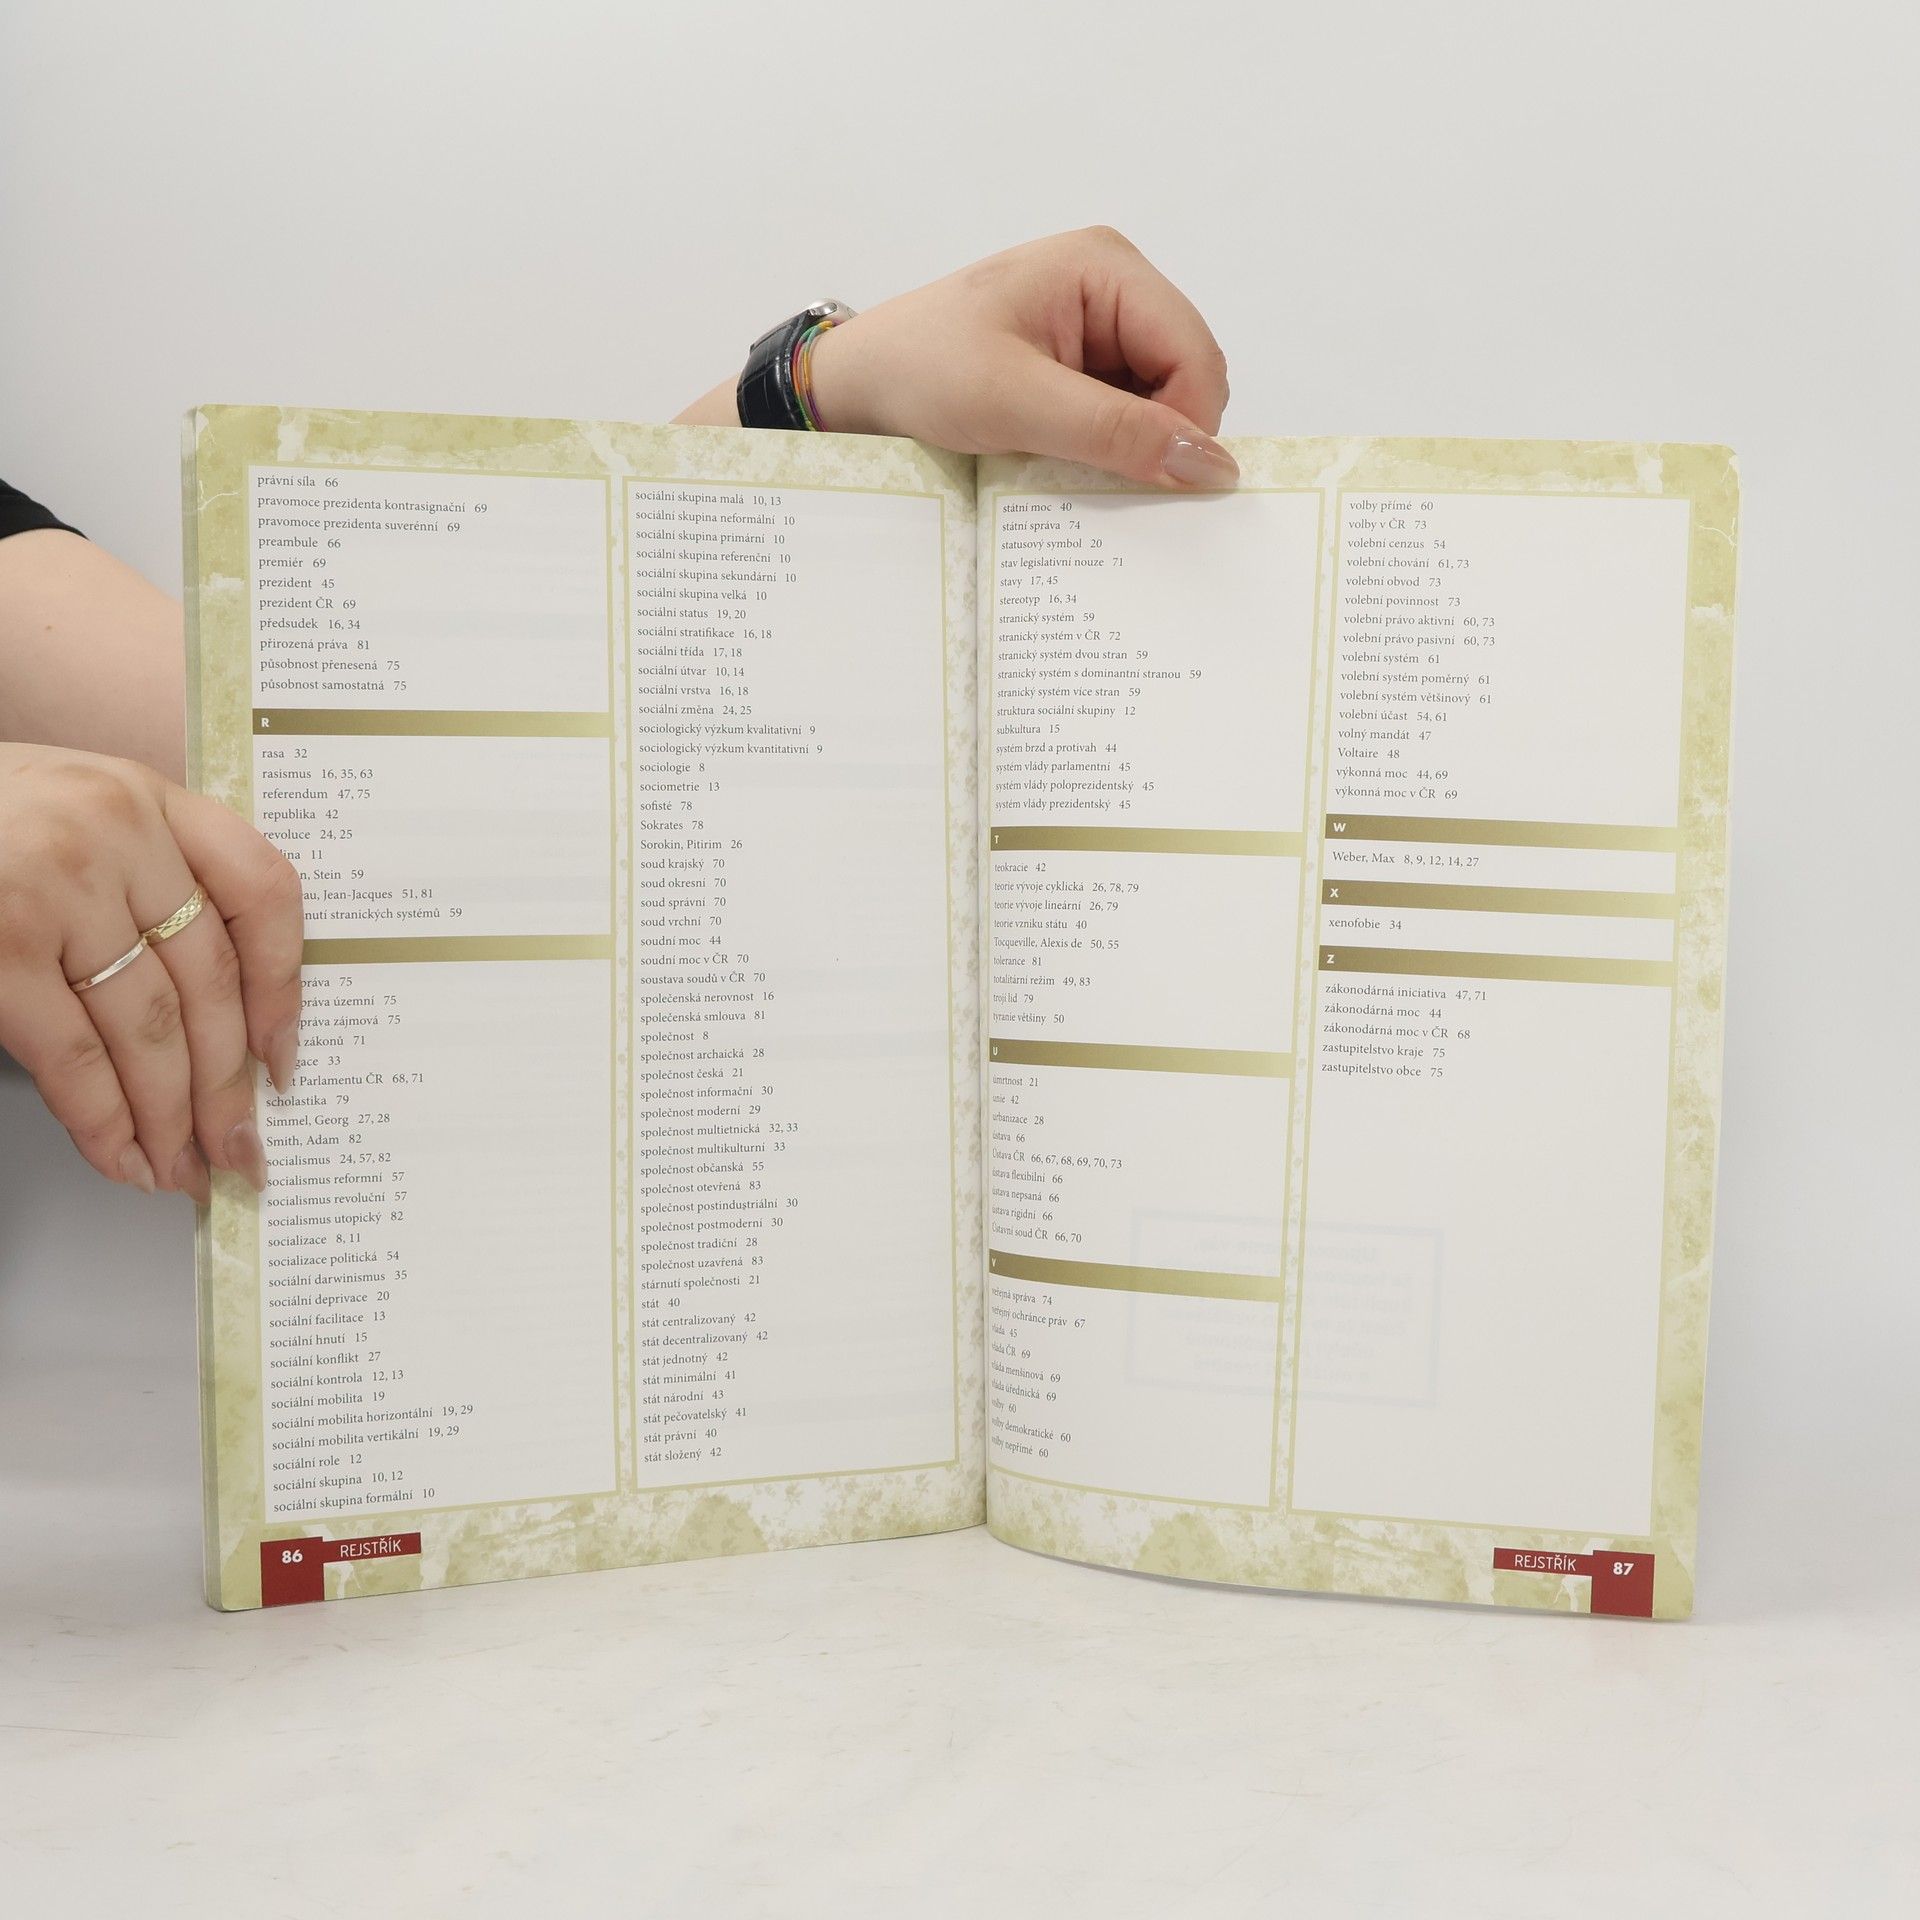 právní síla 66
pravomoce prezidenta kontrasignační 69
pravomoce prezidenta suverénní 69
preambule 66
premiér 69
prezident 45
prezident ČR 69
předsudek 16, 34
přirozená práva 81
působnost přenesená 75
působnost samostatná 75
R
rasa 32
rasismus 16, 35, 63
referendum 47, 75
republika 42
revoluce 24, 25
11
Stein 59
Jean-Jacques 51, 81
stranických systémů 59
75
územní 75
zájmová 75
zákonů 71
33
Parlamentu ČR 68, 71
scholastika 79
Simmel, Georg 27, 28
Smith, Adam 82
socialismus 24, 57, 82
socialismus reformní 57
socialismus revoluční 57
socialismus utopický 82
socializace 8, 11
socializace politická 54
sociální darwinismus 35
sociální deprivace 20
sociální facilitace 13
sociální hnutí 15
sociální konflikt 27
sociální kontrola 12, 13
sociální mobilita 19
sociální mobilita horizontální 19, 29
sociální mobilita vertikální 19, 29
sociální role 12
sociální skupina 10, 12
sociální skupina formální 10
sociální skupina malá 10, 13
sociální skupina neformální 10
sociální skupina primární 10
sociální skupina referenční 10
sociální skupina sekundární 10
sociální skupina velká 10
sociální status 19, 20
sociální stratifikace 16, 18
sociální třída 17, 18
sociální útvar 10, 14
sociální vrstva 16, 18
sociální změna 24, 25
sociologický výzkum kvalitativní 9
sociologický výzkum kvantitativní 9
sociologie 8
sociometrie 13
sofisté 78
Sokrates 78
Sorokin, Pitirim 26
soud krajský 70
soud okresní 70
soud správní 70
soud vrchní 70
soudní moc 44
soudní moc v ČR 70
soustava soudů v ČR 70
společenská nerovnost 16
společenská smlouva 81
společnost 8
společnost archaická 28
společnost česká 21
společnost informační 30
společnost moderní 29
společnost multietnická 32, 33
společnost multikulturní 33
společnost občanská 55
společnost otevřená 83
společnost postindustriální 30
společnost postmoderní 30
společnost tradiční 28
společnost uzavřená 83
stárnutí společnosti 21
stát 40
stát centralizovaný 42
stát decentralizovaný 42
stát jednotný 42
stát minimální 41
stát národní 43
stát pečovatelský 41
stát právní 40
stát složený 42
86 REJSTŘÍK
státní moc 40
státní správa 74
statusový symbol 20
stav legislativní nouze 71
stavy 17, 45
stereotyp 16, 34
stranický systém 59
stranický systém v ČR 72
stranický systém dvou stran 59
stranický systém s dominantní stranou 59
stranický systém více stran 59
struktura sociální skupiny 12
subkultura 15
systém brzd a protivah 44
systém vlády parlamentní 45
systém vlády poloprezidentský 45
systém vlády prezidentský 45
T
teokracie 42
teorie vývoje cyklická 26, 78, 79
teorie vývoje lineární 26, 79
teorie vzniku státu 40
Tocqueville, Alexis de 50, 55
tolerance 81
totalitární režim 49, 83
trojí lid 79
tyranie většiny 50
U
úmrtnost 21
unie 42
urbanizace 28
ústava 66
Ústava ČR 66, 67, 68, 69, 70, 73
ústava flexibilní 66
ústava nepsaná 66
ústava rigidní 66
Ústavní soud ČR 66, 70
V
veřejná správa 74
veřejný ochránce práv 67
vláda 45
vláda ČR 69
vláda menšinová 69
vláda úřednická 69
volby 60
volby demokratické 60
volby nepřímé 60
volby přímé 60
volby v ČR 73
volební cenzus 54
volební chování 61, 73
volební obvod 73
volební povinnost 73
volební právo aktivní 60, 73
volební právo pasivní 60, 73
volební systém 61
volební systém poměrný 61
volební systém většinový 61
volební účast 54, 61
volný mandát 47
Voltaire 48
výkonná moc 44, 69
výkonná moc v ČR 69
W
Weber, Max 8, 9, 12, 14, 27
X
xenofobie 34
Z
zákonodárná iniciativa 47, 71
zákonodárná moc 44
zákonodárná moc v ČR 68
zastupitelstvo kraje 75
zastupitelstvo obce 75
REJSTŘÍK 87